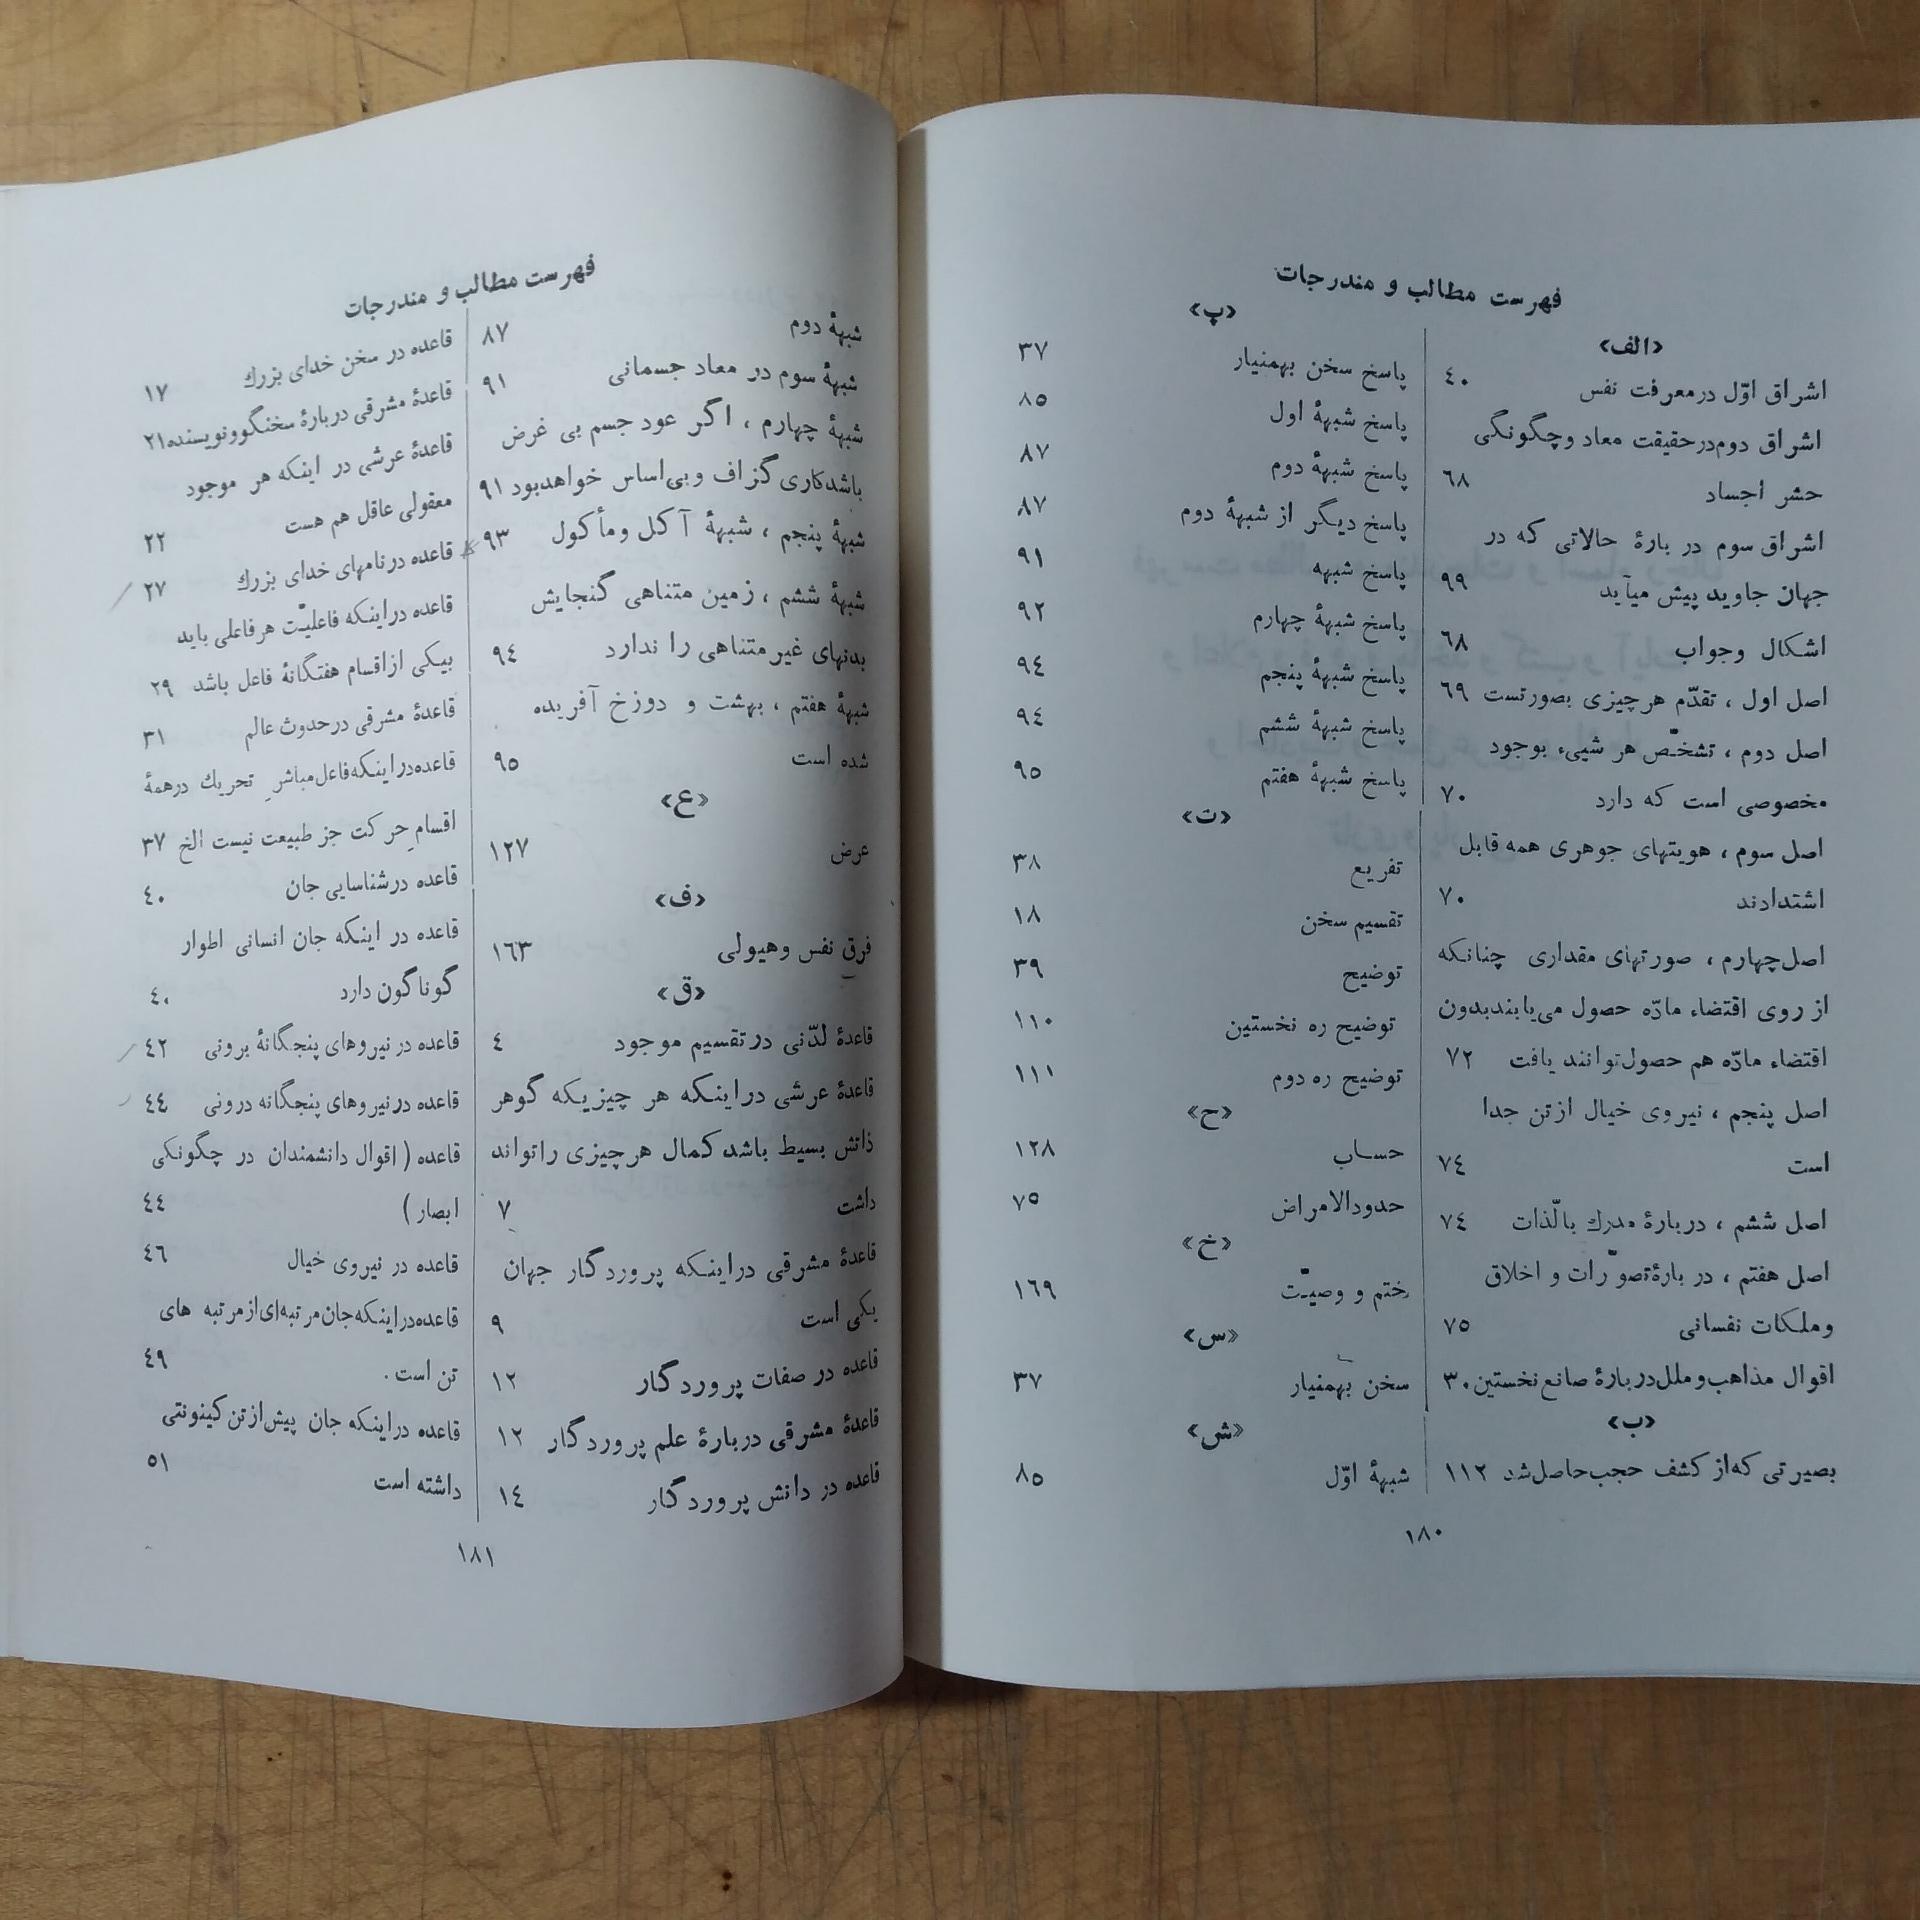 فهرست مطالب و مندرجات
«الف»
اشراق اوّل در معرفت نفس ٤٠
اشراق دوم در حقیقت معاد و چگونگی
حشر اجساد ٦٨
اشراق سوم در بارهٔ حالاتی که در
جهان جاوید پیش میآید ٩٩
اشکال وجواب ٦٨
اصل اول ، تقدّم هر چیزی بصورتست ٦٩
اصل دوم ، تشخّص هر شییء بوجود
مخصوصی است که دارد ٧٠
اصل سوم ، هویتهای جوهری همه قابل
اشتدادند ٧٠
اصل چهارم ، صورتهای مقداری چنانکه
از روی اقتضاء مادّه حصول می‌یابند بدون
اقتضاء مادّه هم حصول توانند یافت ٧٢
اصل پنجم ، نیروی خیال از تن جدا
است ٧٤
اصل ششم ، دربارهٔ مدرك بالّذات ٧٤
اصل هفتم ، در بارهٔ تصوّرات و اخلاق
وملکات نفسانی ٧٥
اقوال مذاهب و ملل دربارهٔ صانع نخستین ٣٠
«ب»
بصیرتی که از کشف حجب حاصل شد ١١٢
«پ»
پاسخ سخن بهمنیار ٣٧
پاسخ شبههٔ اول ٨٥
پاسخ شبههٔ دوم ٨٧
پاسخ دیگر از شبههٔ دوم ٨٧
پاسخ شبهه ٩١
پاسخ شبههٔ چهارم ٩٢
پاسخ شبههٔ پنجم ٩٤
پاسخ شبههٔ ششم ٩٤
پاسخ شبههٔ هفتم ٩٥
«ت»
تفریع ٣٨
تقسیم سخن ١٨
توضیح ٣٩
توضیح ره نخستین ١١٠
توضیح ره دوم ١١١
«ح»
حساب ١٢٨
حدودالامراض ٧٥
«خ»
ختم و وصیّت ١٦٩
«س»
سخن بهمنیار ٣٧
«ش»
شبههٔ اوّل ٨٥
١٨٠
فهرست مطالب و مندرجات
شبههٔ دوم ٨٧
شبههٔ سوم در معاد جسمانی ٩١
شبههٔ چهارم ، اگر عود جسم بی غرض
باشد کاری گزاف و بی‌اساس خواهد بود ٩١
شبههٔ پنجم ، شبههٔ آکل ومأکول ٩٣
شبههٔ ششم ، زمین متناهی گنجایش
بدنهای غیر متناهی را ندارد ٩٤
شبههٔ هفتم ، بهشت و دوزخ آفریده
شده است ٩٥
«ع»
عرض ١٢٧
«ف»
فرق نفس وهیولی ١٦٣
«ق»
قاعدهٔ لدّنی در تقسیم موجود ٤
قاعدهٔ عرشی دراینکه هر چیزیکه گوهر
ذاتش بسیط باشد کمال هر چیزی را تواند
داشت ٧
قاعدهٔ مشرقی دراینکه پروردگار جهان
یکی است ٩
قاعده در صفات پروردگار ١٢
قاعدهٔ مشرقی دربارهٔ علم پروردگار ١٢
قاعده در دانش پروردگار ١٤
قاعده در سخن خدای بزرك ١٧
قاعدهٔ مشرقی دربارهٔ سخنگو و نویسنده ٢١
قاعدهٔ عرشی در اینکه هر موجود
معقولی عاقل هم هست ٢٢
قاعده در نامهای خدای بزرك ٢٧
قاعده دراینکه فاعلیّت هر فاعلی باید
بیکی از اقسام هفتگانهٔ فاعل باشد ٢٩
قاعدهٔ مشرقی در حدوث عالم ٣١
قاعده دراینکه فاعل مباشرِ تحریك در همهٔ
اقسامِ حرکت جز طبیعت نیست الخ ٣٧
قاعده در شناسایی جان ٤٠
قاعده در اینکه جان انسانی اطوار
گوناگون دارد ٤٠
قاعده در نیروهای پنجگانهٔ برونی ٤٢
قاعده در نیروهای پنجگانه درونی ٤٤
قاعده ( اقوال دانشمندان در چگونگی
ابصار ) ٤٤
قاعده در نیروی خیال ٤٦
قاعده دراینکه جان مرتبه‌ای از مرتبه های
تن است . ٤٩
قاعده دراینکه جان پیش از تن کینونتی
داشته است ٥١
١٨١